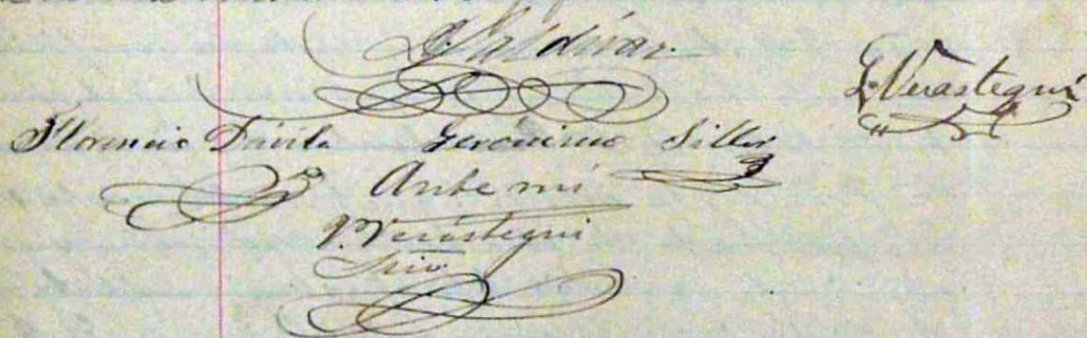 Saldivar
L. Verastegui
Florencio Dávila Gerónimo Siller
Ante mi
P. Verástegui
Srio